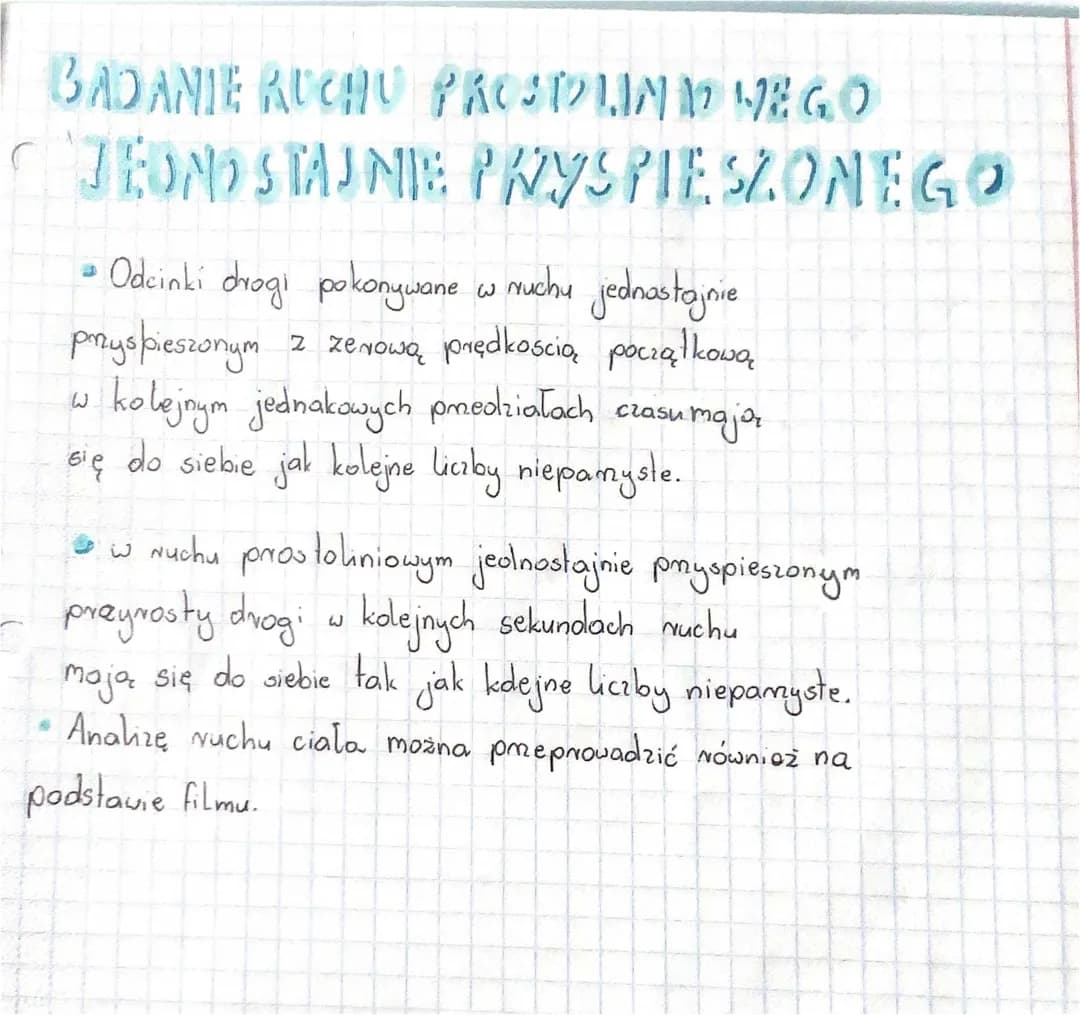 BADANIE RUCHU PROSTOLINIOWEGO
JEDNOSTAJNIE PRZYSPIESZONEGO
• Odcinki drogi pokonywane w ruchu jednostajnie
przyspieszonym z zerową prędkoscią początkową
w kolejnym jednakowych przedziałach czasu mają
się do siebie jak kolejne liczby nieparzyste.
• w ruchu prostoliniowym jednostajnie przyspieszonym
przyrosty drogi w kolejnych sekundach ruchu
mają się do siebie tak jak kolejne liczby nieparzyste.
• Analizę ruchu ciała można przeprowadzić również na
podstawie filmu.